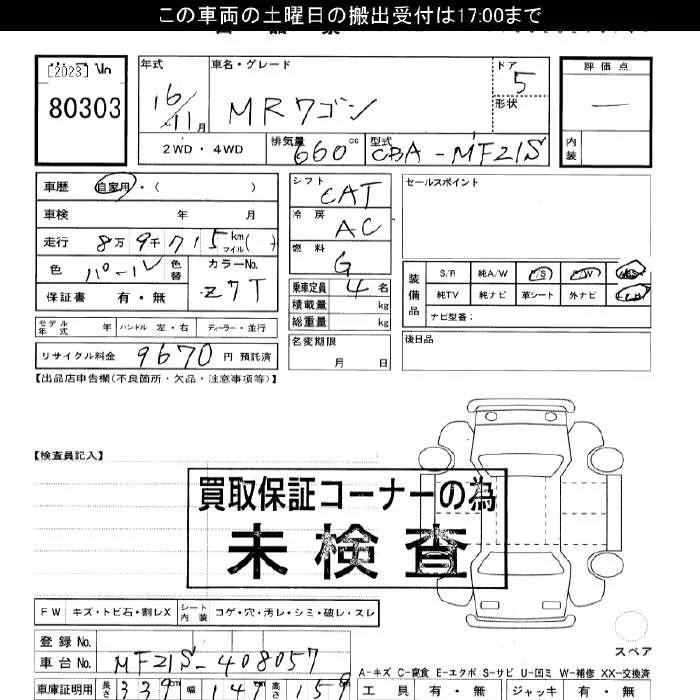 この車両の土曜日の搬出受付は17:00まで
[2023] No
80303
年式
16/11月
車名・グレード
MRワゴン
ドア
5
形状
評価点
—
内装
2WD・4WD
排気量
660cc
型式
CBA-MF21S
車歴
自家用・( )
車検 年 月
走行 8万9千715km マイル( )
色 パール 色替
カラーNo.
Z7T
保証書 有・無
シフト CAT
冷房 AC
燃料 G
乗車定員 4名
積載量 kg
総重量 kg
セールスポイント
装備品
S/R 純A/W P/S P/W
純TV 純ナビ 革シート 外ナビ
ナビ型番:
モデル年式 年 ハンドル 左・右 ディーラー・並行
リサイクル料金 9670円 預託済
名変期限
月 日
後日品
【出品店申告欄(不良箇所・欠品・注意事項等)】
【検査員記入】
買取保証コーナーの為
未検査
FW キズ・トビ石・割レX シート内装 コゲ・穴・汚レ・シミ・破レ・スレ
登録No.
車台No. MF21S-408057
スペア
A-キズ C-腐食 E-エクボ S-サビ U-凹ミ W-補修 XX-交換済
車庫証明用 長さ 339cm 幅 147cm 高さ 159
工具 有・無 ジャッキ 有・無